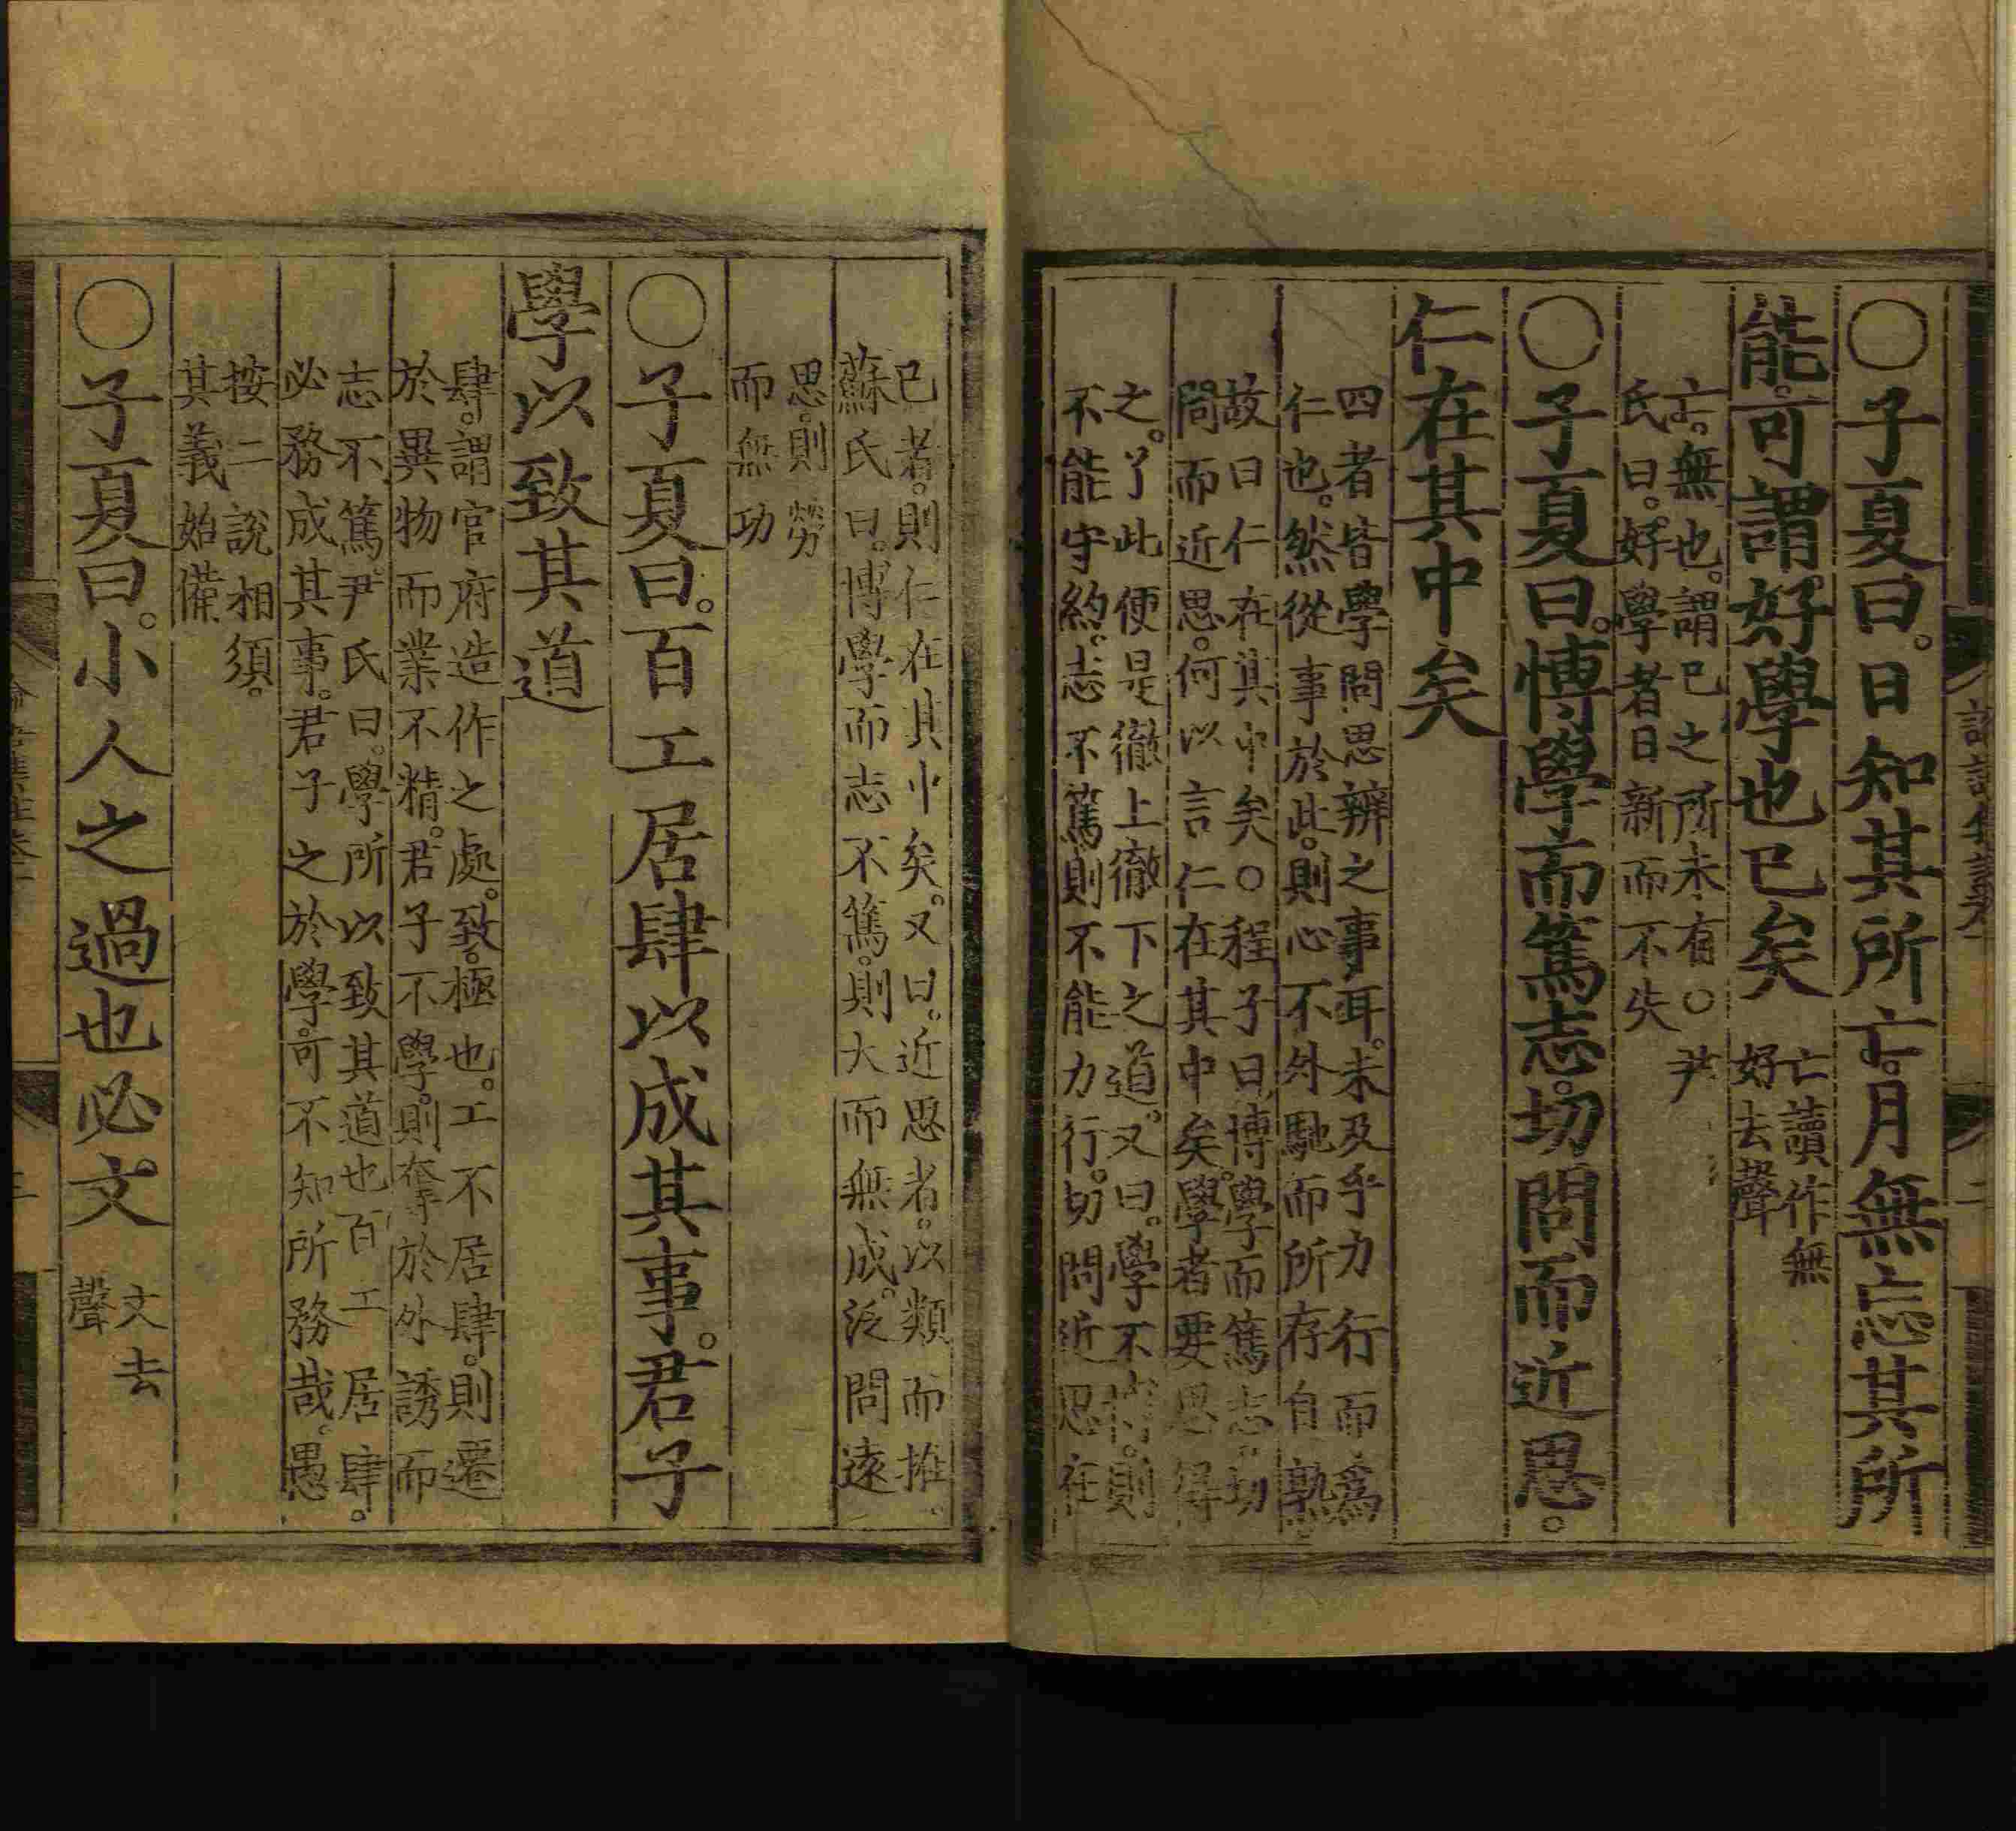 ○子夏曰。日知其所亡。月無忘其所
能。可謂好學也已矣
亡讀作無
好去聲
亡。無也。謂已之所未有。○尹
氏曰。好學者日新而不失
○子夏曰。博學而篤志。切問而近思。
仁在其中矣
四者皆學問思辨之事耳。未及乎力行而爲
仁也。然從事於此。則心不外馳而所存自熟
故曰仁在其中矣。○程子曰。博學而篤志。切
問而近思。何以言仁在其中矣。學者要思得
之。了此便是徹上徹下之道。又曰。學不博。則
不能守約。志不篤則不能力行。切問近思在
已者。則仁在其中矣。又曰。近思者。以類而推。
蘇氏曰。博學而志不篤。則大而無成。泛問遠
思。則勞
而無功
○子夏曰。百工居肆以成其事。君子
學以致其道
肆。謂官府造作之處。致。極也。工不居肆。則遷
於異物而業不精。君子不學。則奪於外誘而
志不篤。尹氏曰。學所以致其道也百工居肆。
必務成其事。君子之於學。可不知所務哉。愚
按二說相須。
其義始備
○子夏曰。小人之過也必文
文去
聲